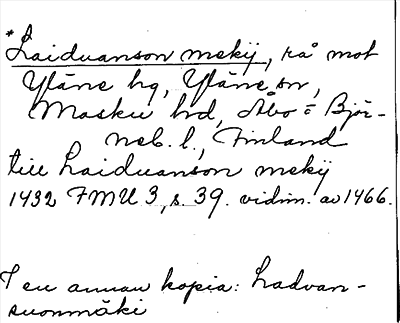 *Laiduanson mekij, rå mot
Yläne hg, Yläne sn,
Masku hd, Åbo = Björ-
neb. l., Finland
till Laiduanson mekij
1432 FMU 3, s. 39. vidim. av 1466.
I en annan kopia: Ladvan-
suonmäki